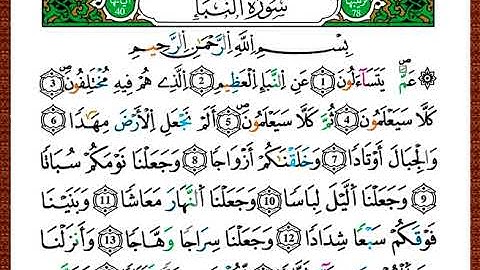 78 سُورَةُ ٱلنَّبَإِ 40
بِسْمِ ٱللَّهِ ٱلرَّحْمَٰنِ ٱلرَّحِيمِ
عَمَّ يَتَسَآءَلُونَ 1 عَنِ ٱلنَّبَإِ ٱلْعَظِيمِ 2 ٱلَّذِى هُمْ فِيهِ مُخْتَلِفُونَ 3
كَلَّا سَيَعْلَمُونَ 4 ثُمَّ كَلَّا سَيَعْلَمُونَ 5 أَلَمْ نَجْعَلِ ٱلْأَرْضَ مِهَٰدًا 6
وَٱلْجِبَالَ أَوْتَادًا 7 وَخَلَقْنَٰكُمْ أَزْوَٰجًا 8 وَجَعَلْنَا نَوْمَكُمْ سُبَاتًا
9 وَجَعَلْنَا ٱلَّيْلَ لِبَاسًا 10 وَجَعَلْنَا ٱلنَّهَارَ مَعَاشًا 11 وَبَنَيْنَا
فَوْقَكُمْ سَبْعًا شِدَادًا 12 وَجَعَلْنَا سِرَاجًا وَهَّاجًا 13 وَأَنزَلْنَا